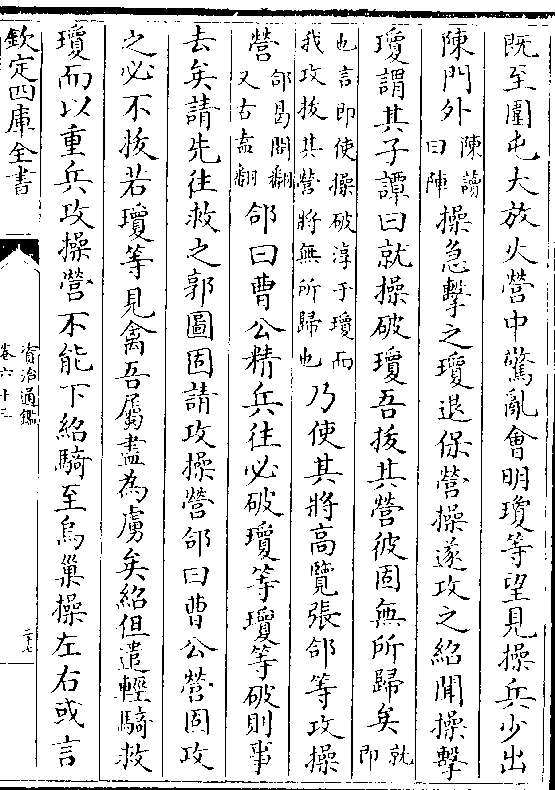 既至圍屯大放火營中驚亂會明瓊等望見操兵少出
陳門外陳讀曰陣操急擊之瓊退保營操遂攻之紹聞操擊
瓊謂其子譚曰就操破瓊吾拔其營彼固無所歸矣就即
也言即使操破淳于瓊而我攻拔其營將無所歸也乃使其將高覽張郃等攻操
營郃曷閤翻又古盍翻郃曰曹公精兵往必破瓊等瓊等破則事
去矣請先往救之郭圖固請攻操營郃曰曹公營固攻
之必不拔若瓊等見禽吾屬盡為虜矣紹但遣輕騎救
瓊而以重兵攻操營不能下紹騎至烏巢操左右或言
欽定四庫全書
資治通鑑
卷六十三
二十七